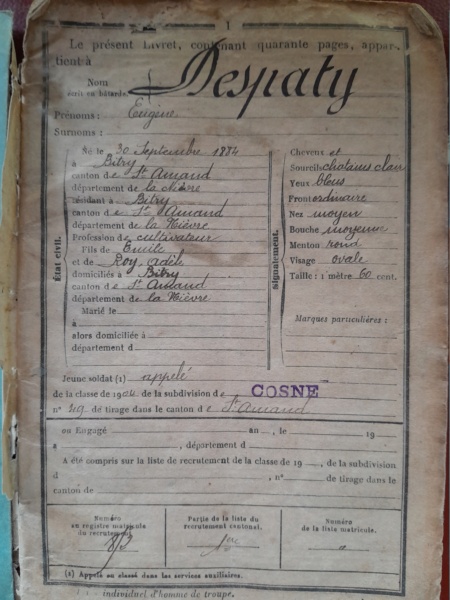 1
Le présent Livret, contenant quarante pages, appar-
tient à
Nom
écrit en bâtarde.
Despaty
Prénoms : Eugène
Surnoms :
État civil.
Né le 30 Septembre 1884
à Bitry
canton de St Amand
département de la Nièvre
résidant à Bitry
canton de St Amand
département de la Nièvre
Profession de cultivateur
Fils de Emile
et de Roy Adèle
domiciliés à Bitry
canton de St Amand
département de la Nièvre
Marié le
à
alors domiciliée à
département d
Signalement.
Cheveux et
Sourcils chatains clair
Yeux bleus
Front ordinaire
Nez moyen
Bouche moyenne
Menton rond
Visage ovale
Taille : 1 mètre 60 cent.
Marques particulières :
Jeune soldat (1) appelé
de la classe de 1904 de la subdivision de COSNE
n° 49 de tirage dans le canton de St Amand
ou Engagé an , le 19
à , département d
A été compris sur la liste de recrutement de la classe de 19 , de la subdivision
d , n° de tirage dans le
canton de
Numéro
au registre matricule
du recrutement.
813
Partie de la liste du
recrutement cantonal.
1ère
Numéro
de la liste matricule.
"
(1) Appelé ou classé dans les services auxiliaires.
individuel d'homme de troupe.